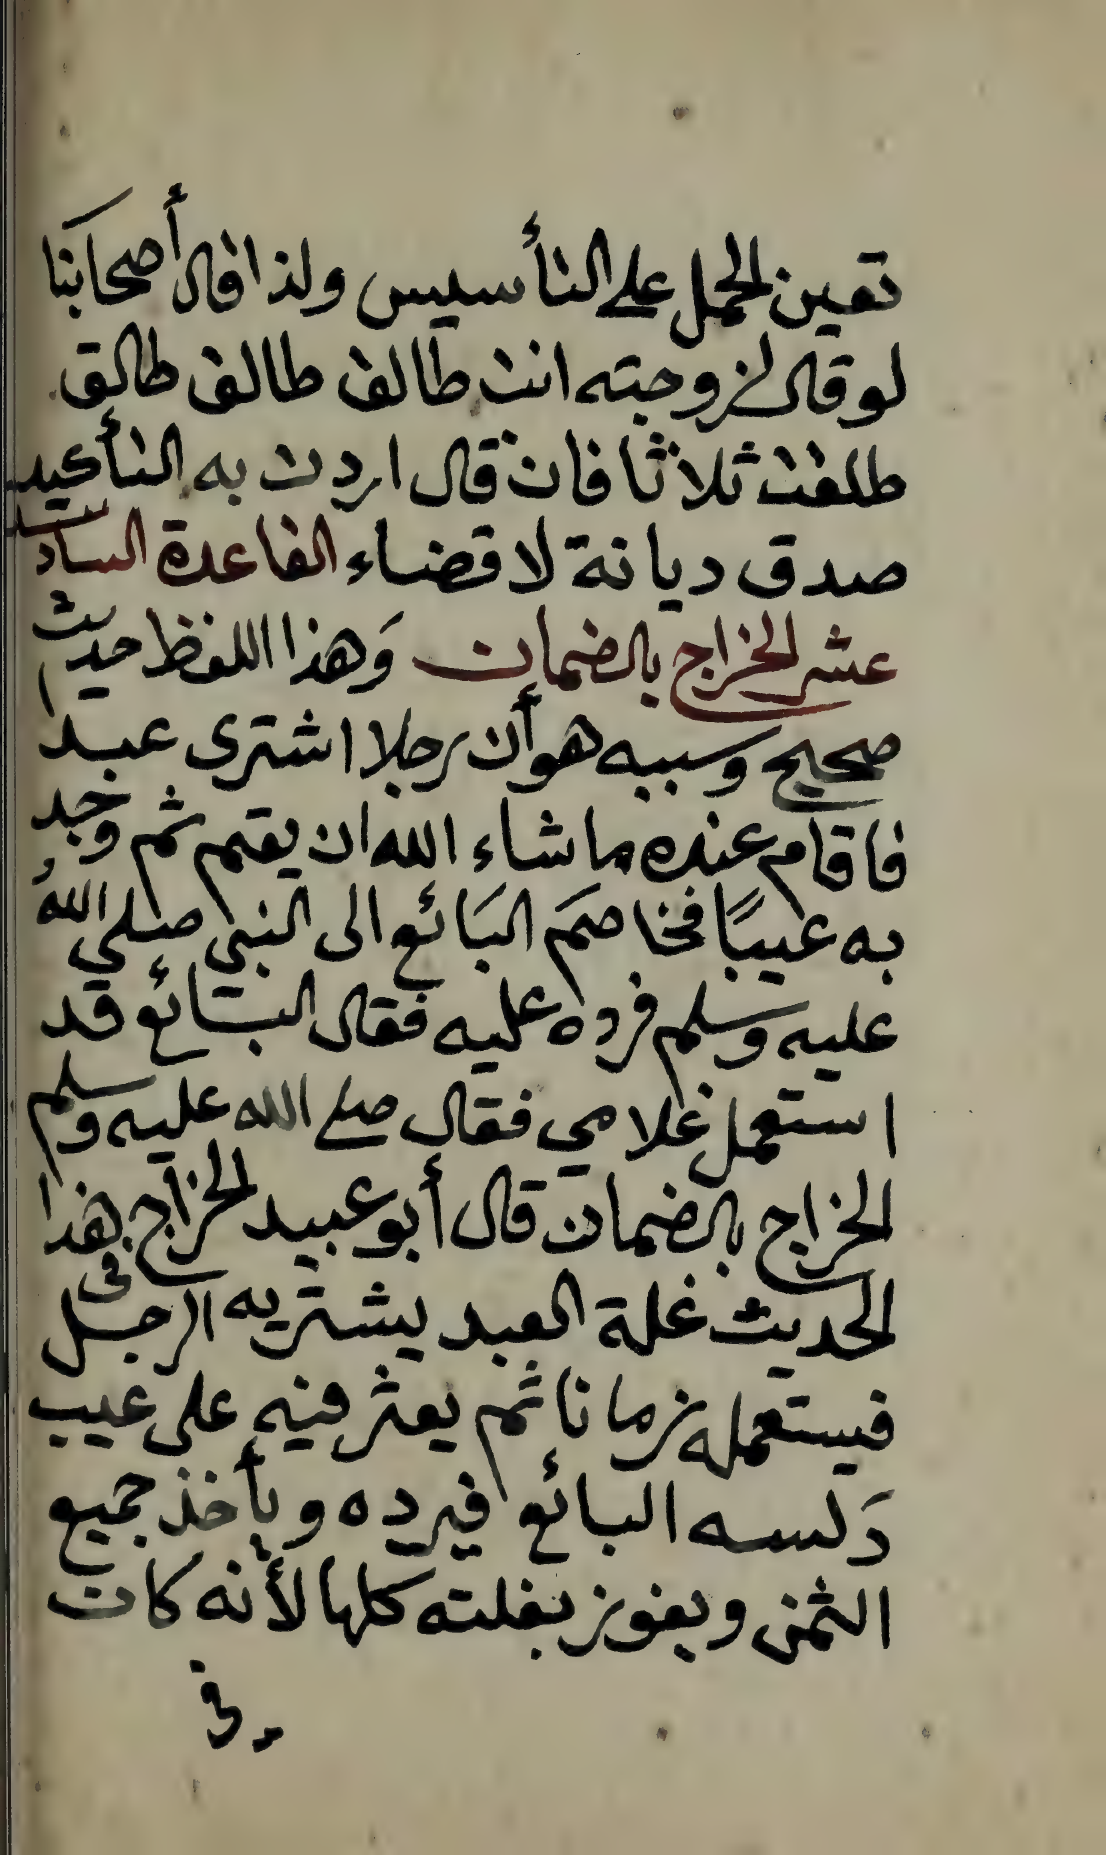 تعين الحمل على التأسيس ولذا قال أصحابنا
لو قال لزوجته انت طالق طالق طالق
طلقت ثلاثا فان قال اردت به التأكيد
صدق ديانة لا قضاء القاعدة السادسة
عشر الخراج بالضمان وَهذا اللفظ حديث
صحيح وسببه هو أن رجلا اشترى عبدا
فاقام عنده ما شاء الله ان يقيم ثم وجد
به عيبًا فخاصمَ البَائع الى النبي صلى اللهُ
عليه وسلم فرده عليه فقال البَائع قد
استعمل غلامي فقال صلى الله عليه وسلم
الخراج بالضمان قال أبو عبيد الخراج بهذا
الحديث غلة العبد يشتريه الرجل
فيستعمله زمانا ثم يعثر فيه على عيب
دَلسه البائع فيرده ويأخذ جميع
الثمن ويفوز بغلته كلها لأنه كان
في